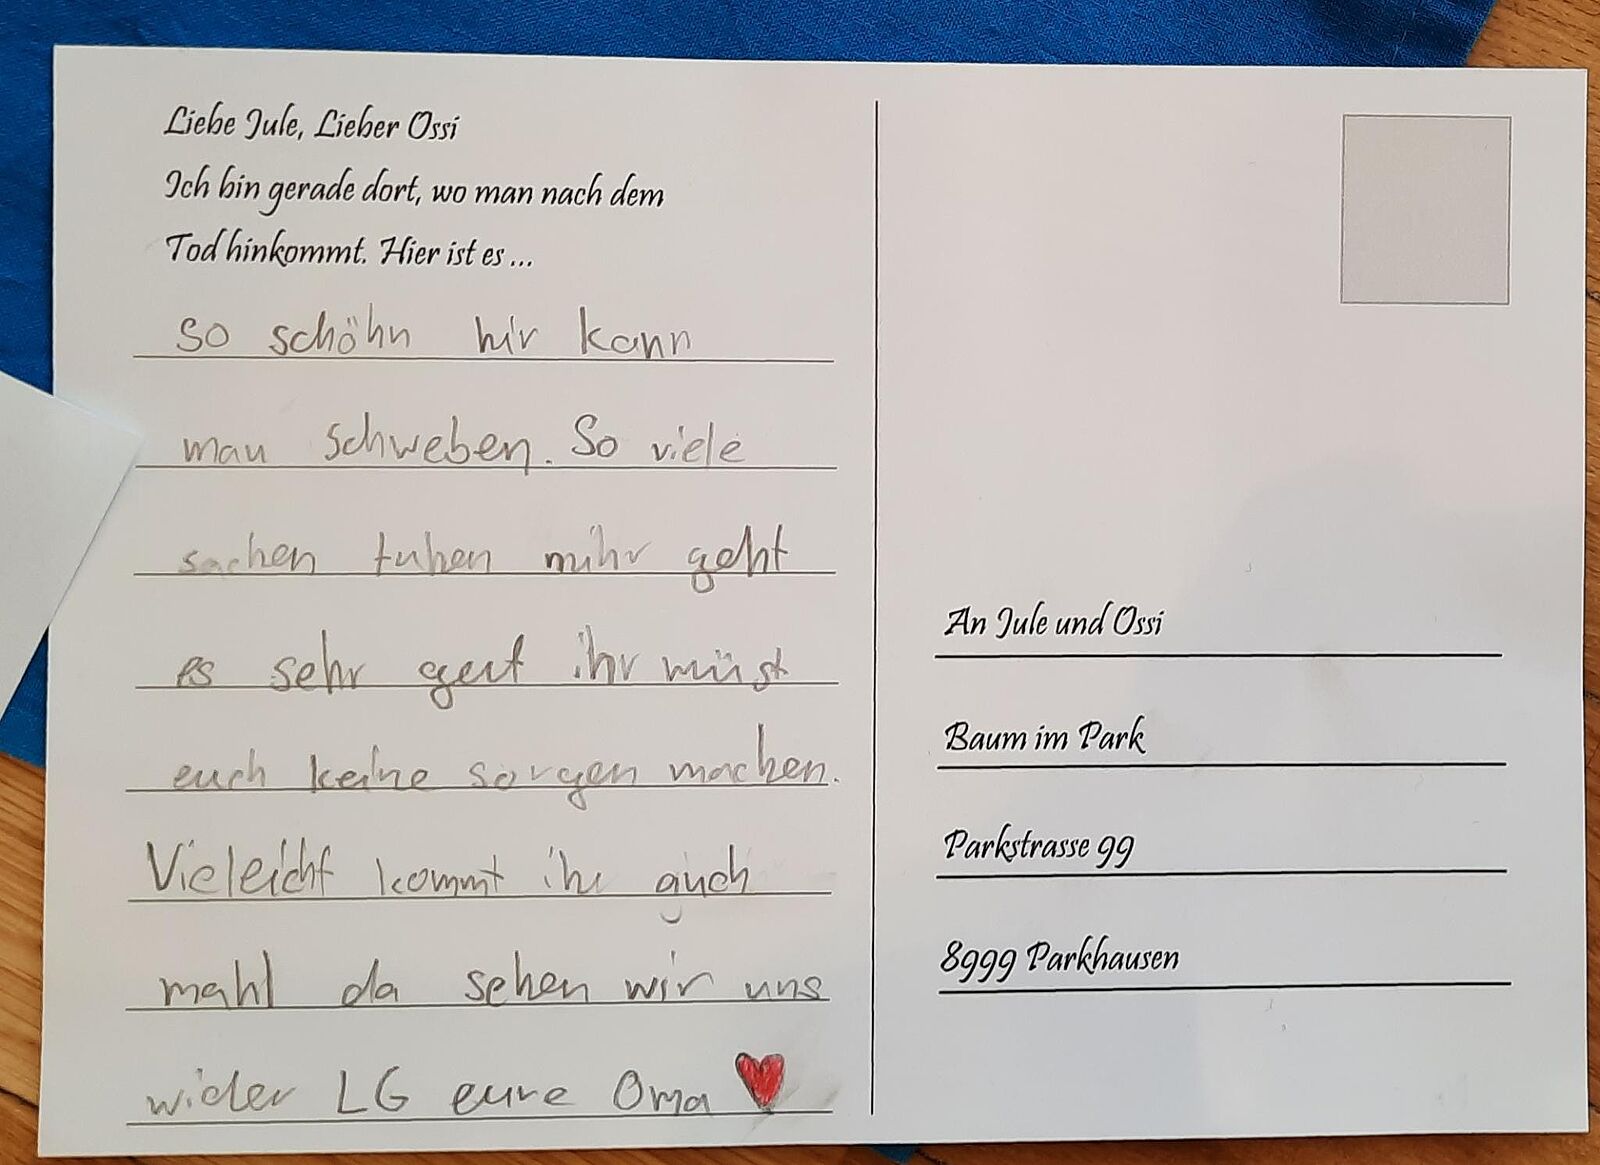 Liebe Jule, Lieber Ossi
Ich bin gerade dort, wo man nach dem
Tod hinkommt. Hier ist es ...
so schöhn hir kann
man schweben. So viele
sachen tuhen mihr geht
es sehr gut ihr müst
euch keine sorgen machen.
Vieleicht kommt ihr auch
mahl da sehen wir uns
wider LG eure Oma
An Jule und Ossi
Baum im Park
Parkstrasse 99
8999 Parkhausen